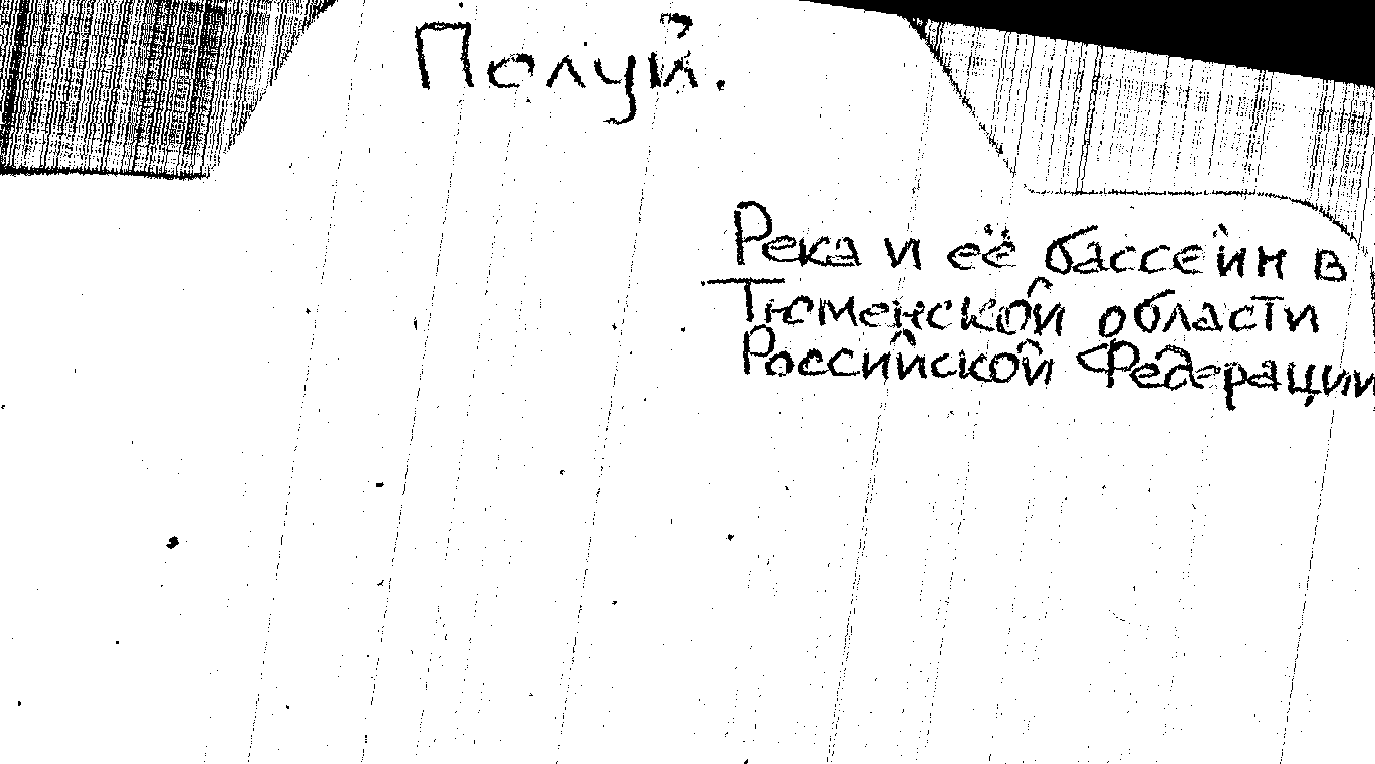 Полуй.
Река и её бассейн в
Тюменской области
Российской Федерации